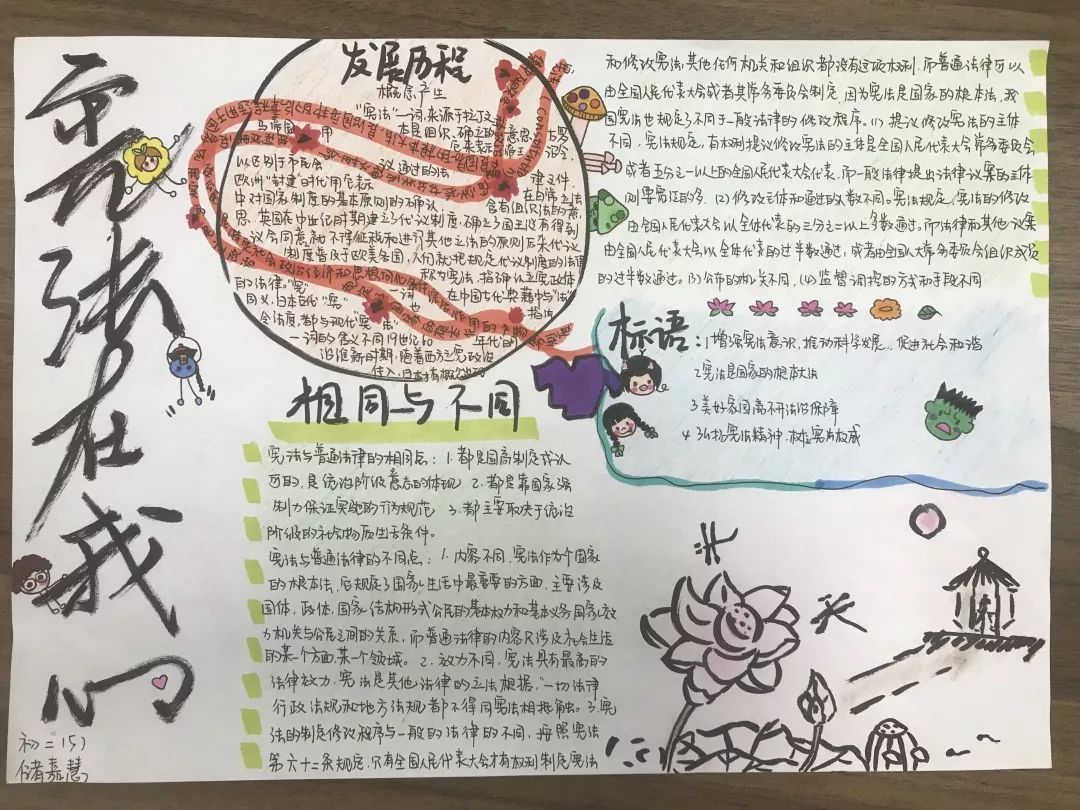 宪法在我们
初二(5)
储嘉慧
发展历程
概念产生
"宪法"一词,来源于拉丁文
本是组织、确立的意思,古罗
马帝国用
以区别于市民会议通过的法律文件,
欧洲"封建"时代用它表示在日常立法
中对国家制度的基本原则的确认,含有组织法的意
思,英国在中世纪时期建立了代议制度,确立了国王没有得到
议会同意就不得征税和进行其他立法的原则后来代议
制度普及于欧美各国,人们就把规定代议制度的法律
称为宪法,指确认立宪政体
的法律。"宪"一词在中国古代典籍中与"法"
同义,日本古代"宪"也指法
令法度,都与现代"宪法"
一词的含义不同19世纪60年代明
治维新时期,随着西方立宪政治
传入,日本才有概念的
相同与不同
宪法与普通法律的相同点:1.都是国家制定或认
可的,是统治阶级意志的体现 2.都是靠国家强
制力保证实施的行为规范 3.都主要取决于统治
阶级的社会物质生活条件。
宪法与普通法律的不同点:1.内容不同,宪法作为个国家
的根本法,它规定了国家生活中最重要的方面,主要涉及
国体,政体,国家结构形式公民的基本权力和基本义务国家权
力机关与公民之间的关系,而普通法律的内容只涉及社会生活
的某个方面某一个领域。2.效力不同,宪法具有最高的
法律权力,宪法是其他法律的立法根据,"一切法律
行政法规和地方法规都不得同宪法相抵触。3.宪
法的制定修改程序与一般的法律的不同,按照宪法
第六十二条规定,只有全国人民代表大会才有权利制定宪法
和修改宪法,其他任何机关和组织都没有这项权利,而普通法律可以
由全国人民代表大会或者其常务委员会制定,因为宪法是国家的根本法,我
国宪法也规定了不同于一般法律的修改程序。(1)提议修改宪法的主体
不同,宪法规定,有权利提议修改宪法的主体是全国人民代表大会常务委员会
或者五分之一以上的全国人民代表大会代表,而一般法律提出法律议案的主体
则要宽泛的多,(2)修改主体和通过人数不同。宪法规定,宪法的修改
由全国人民代表大会以全体代表的三分之二以上多数通过,而法律和其他议案
由全国人民代表大会以全体代表的过半数通过,或者由全国人大常务委员会组织成员
的过半数通过。(3)公布的机关不同,(4)监督调控的方式和手段不同
标语:
1增强宪法意识,推动科学发展,促进社会和谐
2宪法是国家的根本大法
3美好家园离不开法治保障
4弘扬宪法精神,树立宪法权威